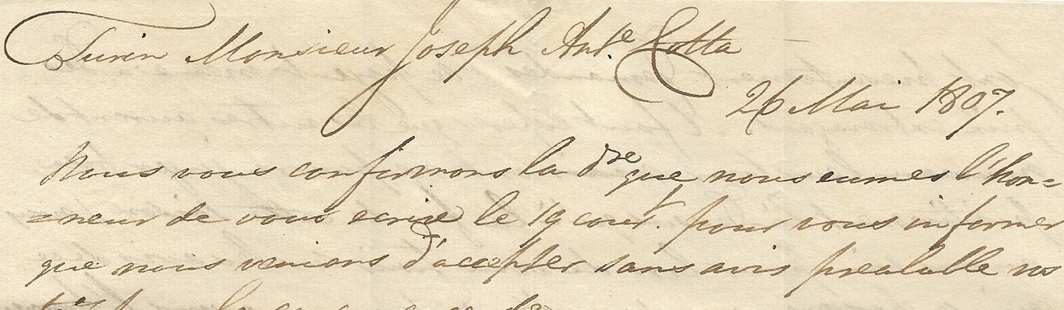 Turin Monsieur Joseph Ant.e Cotta
26 Mai 1807.
Nous vous confirmons la dre que nous eumes l'hon=
=neur de vous ecrire le 19 cour.t pour vous informer
que nous venions d'accepter sans avis prealable vos